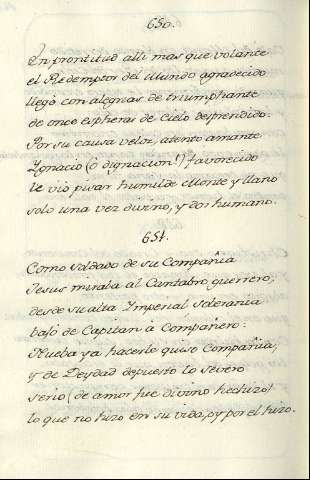 650.
En prontitud alli mas que volante
el Redemptor del Mundo agradecido
llegó con alegrias de triumphante
de onco espheras de Cielo desprendido:
Por su causa veloz, atento amante
Ygnacio (ô dignacion!) favorecido
le vio pisar humilde Monte y llano
solo una vez divino, y dos humano.
651.
Como soldado de su Compañia
Jesus miraba al Cantabro guerrero;
desde su alta Imperial Soberania
bajó de Capitan â Compañero:
Nueba ya hacerle quiso Compañia,
y de Deydad depuesto lo severo
serio (de amor fue divino hechizo)
lo que no hizo en su vida, oy por el hizo.